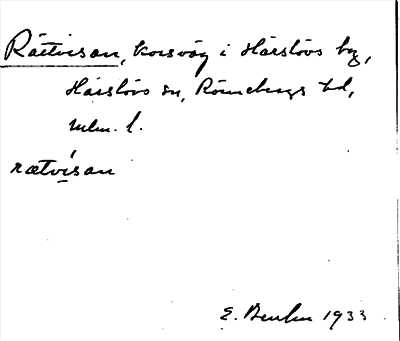 Rättvisan, korsväg i Härslövs by,
Härslövs sn, Rönnebergs hd,
Mlm. l.
rætvísan
E. Benlin 1933